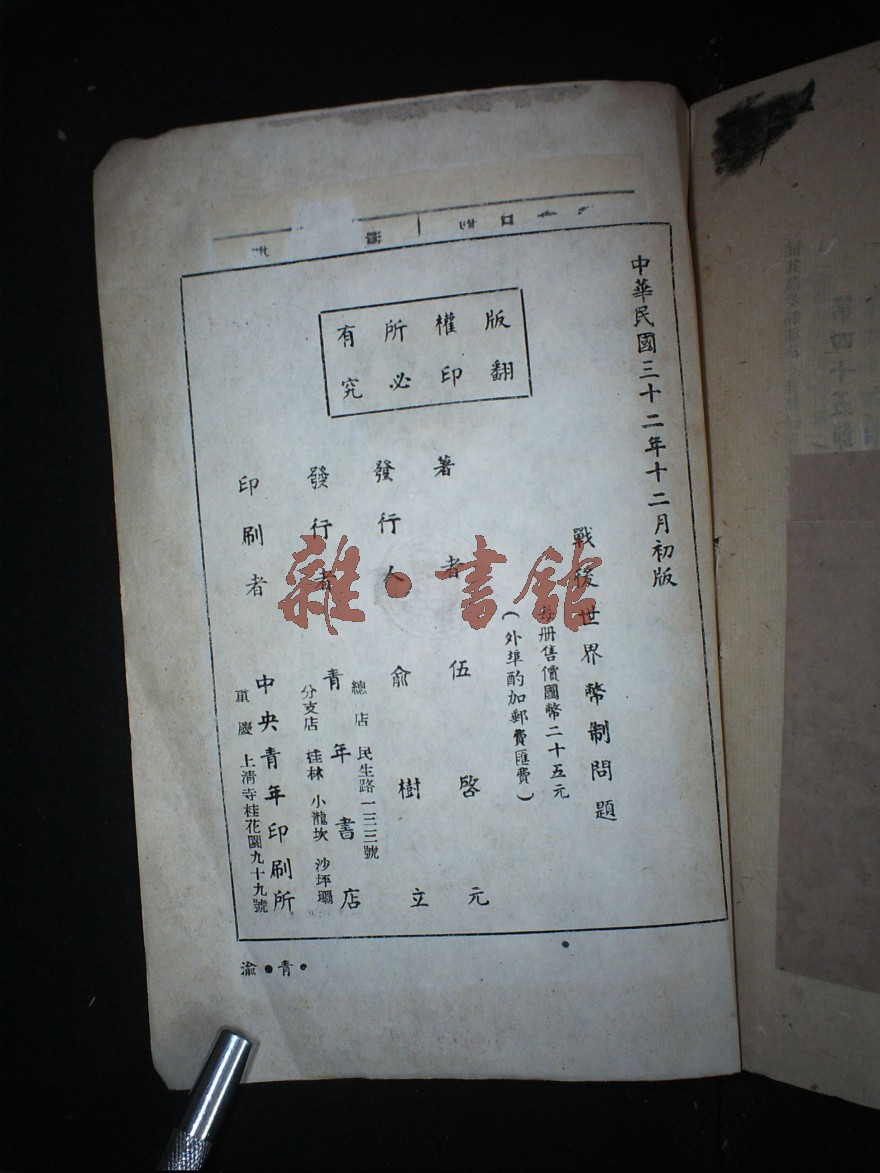 中華民國三十二年十二月初版
戰後世界幣制問題
每冊售價國幣二十五元
(外埠酌加郵費匯費)
版權所有
翻印必究
著者 伍啓元
發行人 俞樹立
發行者 青年書店
總店 民生路一三三號
分支店 桂林 小龍坎 沙坪壩
印刷者 中央青年印刷所
重慶 上清寺桂花園九十九號
渝•青•
雜•書館
第四十五節